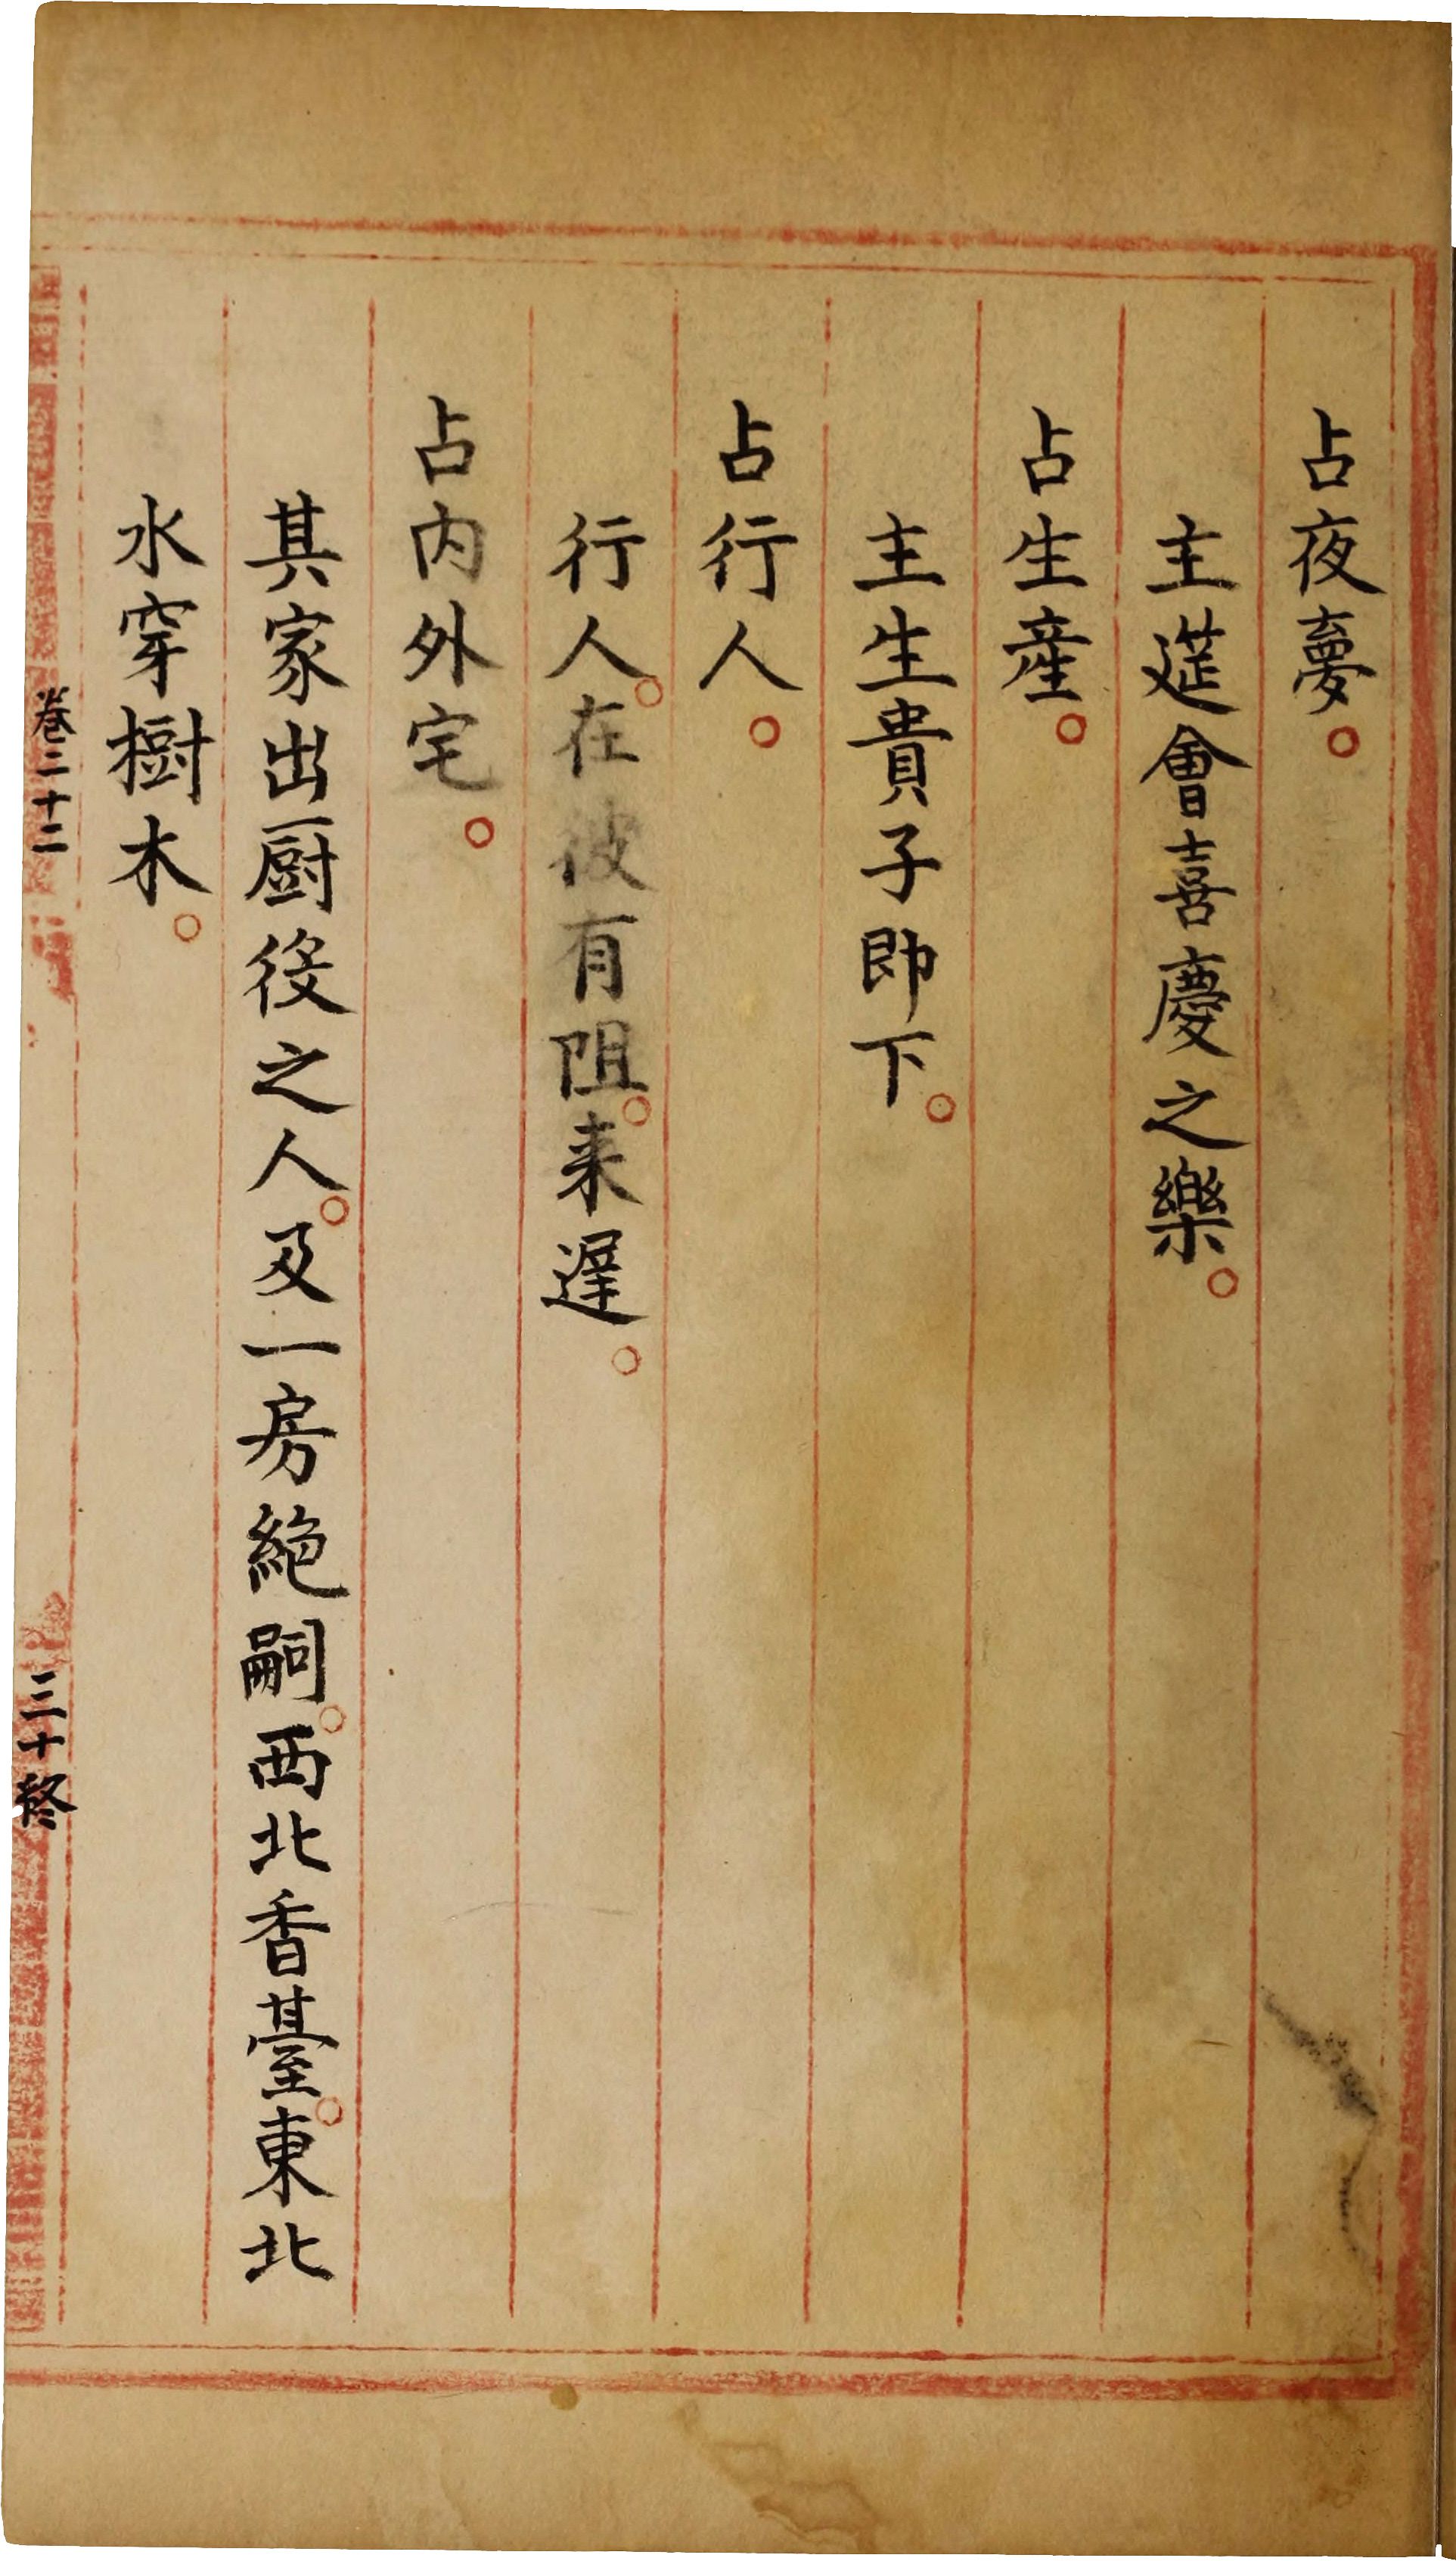 占夜夢。
主莚會喜慶之樂。
占生產。
主生貴子即下。
占行人。
行人。在彼有阻。来遲。
占内外宅。
其家出厨役之人。及一房絶嗣。西北香臺。東北
水穿樹木。
卷二十二
三十終